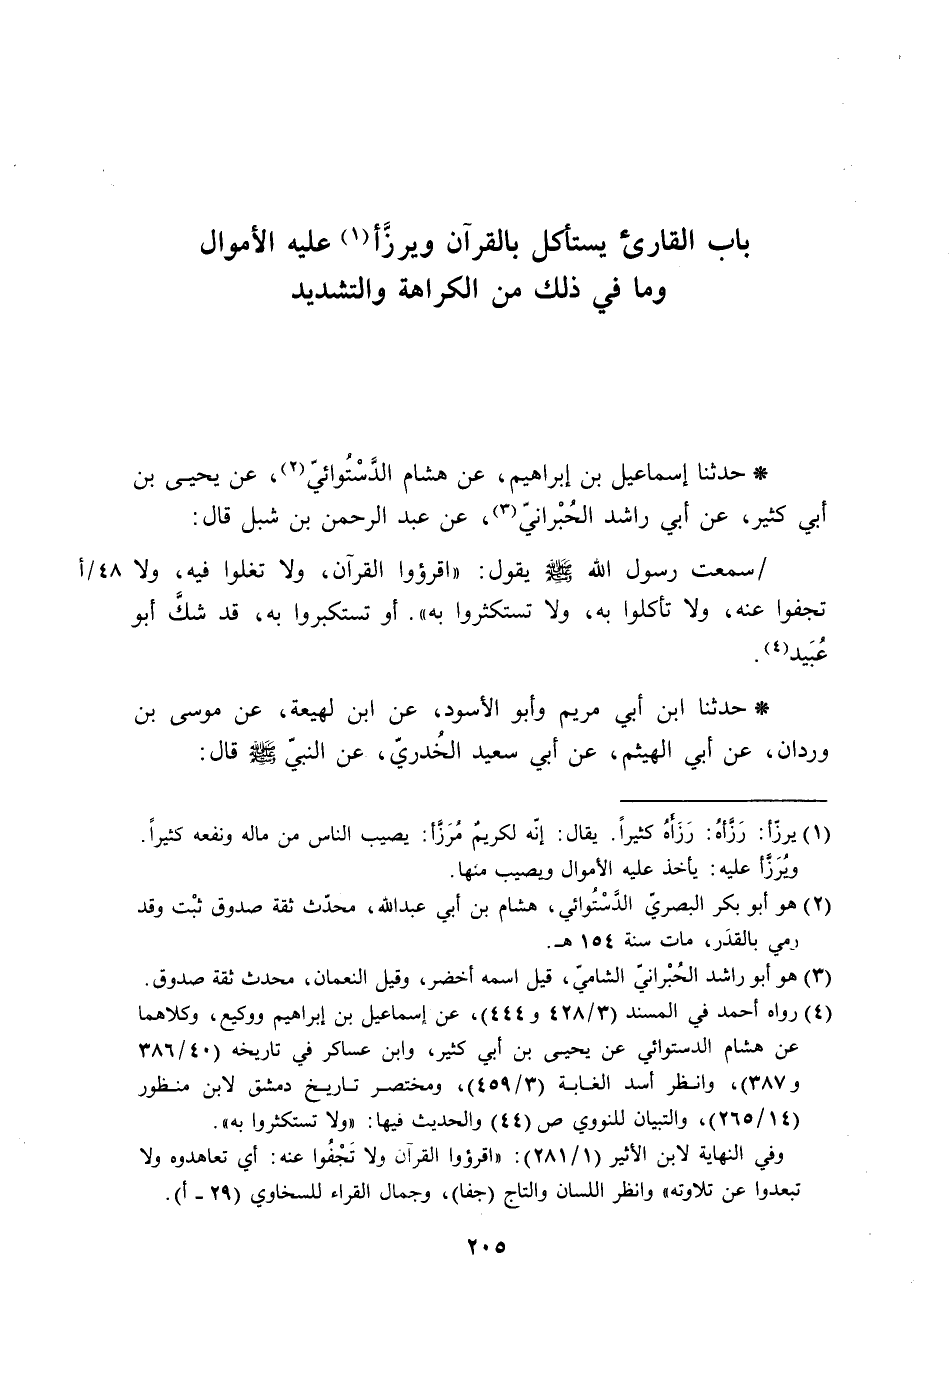 باب القارئ يستأكل بالقرآن ويرزَّأ(١) عليه الأموال
وما في ذلك من الكراهة والتشديد
* حدثنا إسماعيل بن إبراهيم، عن هشام الدَّسْتُوائيّ(٢)، عن يحيى بن
أبي كثير، عن أبي راشد الحُبْرانيّ(٣)، عن عبد الرحمن بن شبل قال:
/سمعت رسول الله ﷺ يقول: «اقرؤوا القرآن، ولا تغلوا فيه، ولا ٤٨/أ
تجفوا عنه، ولا تأكلوا به، ولا تستكثروا به». أو تستكبروا به، قد شكَّ أبو
عُبَيد(٤).
* حدثنا ابن أبي مريم وأبو الأسود، عن ابن لهيعة، عن موسى بن
وردان، عن أبي الهيثم، عن أبي سعيد الخُدريّ، عن النبيّ ﷺ قال:
(١) يرزّأ: رَزَّأهُ: رَزَأَهُ كثيراً. يقال: إنّه لكريمٌ مُرَزَّأ: يصيب الناس من ماله ونفعه كثيراً.
ويُرَزَّأ عليه: يأخذ عليه الأموال ويصيب منها.
(٢) هو أبو بكر البصريّ الدَّسْتُوائي، هشام بن أبي عبدالله، محدّث ثقة صدوق ثبْت وقد
رمي بالقدَر، مات سنة ١٥٤ هـ.
(٣) هو أبو راشد الحُبْرانيّ الشاميّ، قيل اسمه أخضر، وقيل النعمان، محدث ثقة صدوق.
(٤) رواه أحمد في المسند (٤٢٨/٣ و ٤٤٤)، عن إسماعيل بن إبراهيم ووكيع، وكلاهما
عن هشام الدستوائي عن يحيى بن أبي كثير، وابن عساكر في تاريخه (٣٨٦/٤٠
و ٣٨٧)، وانظر أسد الغابة (٤٥٩/٣)، ومختصر تاريخ دمشق لابن منظور
(٢٦٥/١٤)، والتبيان للنووي ص (٤٤) والحديث فيها: «ولا تستكثروا به».
وفي النهاية لابن الأثير (٢٨١/١): «اقرؤوا القرآن ولا تَجْفُوا عنه: أي تعاهدوه ولا
تبعدوا عن تلاوته» وانظر اللسان والتاج (جفا)، وجمال القراء للسخاوي (٢٩ - أ).
٢٠٥